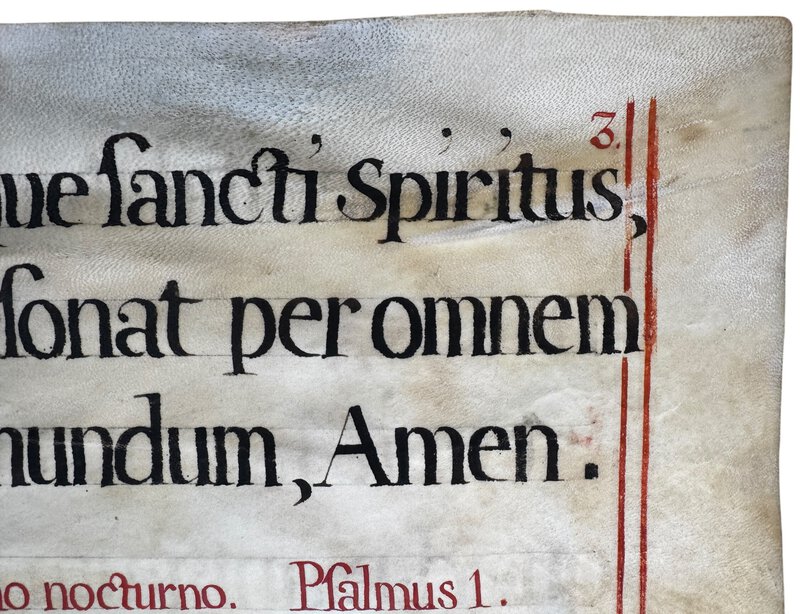 3.
que ſancti Spiritus,
ſonat per omnem
mundum, Amen.
no nocturno. Pſalmus 1.